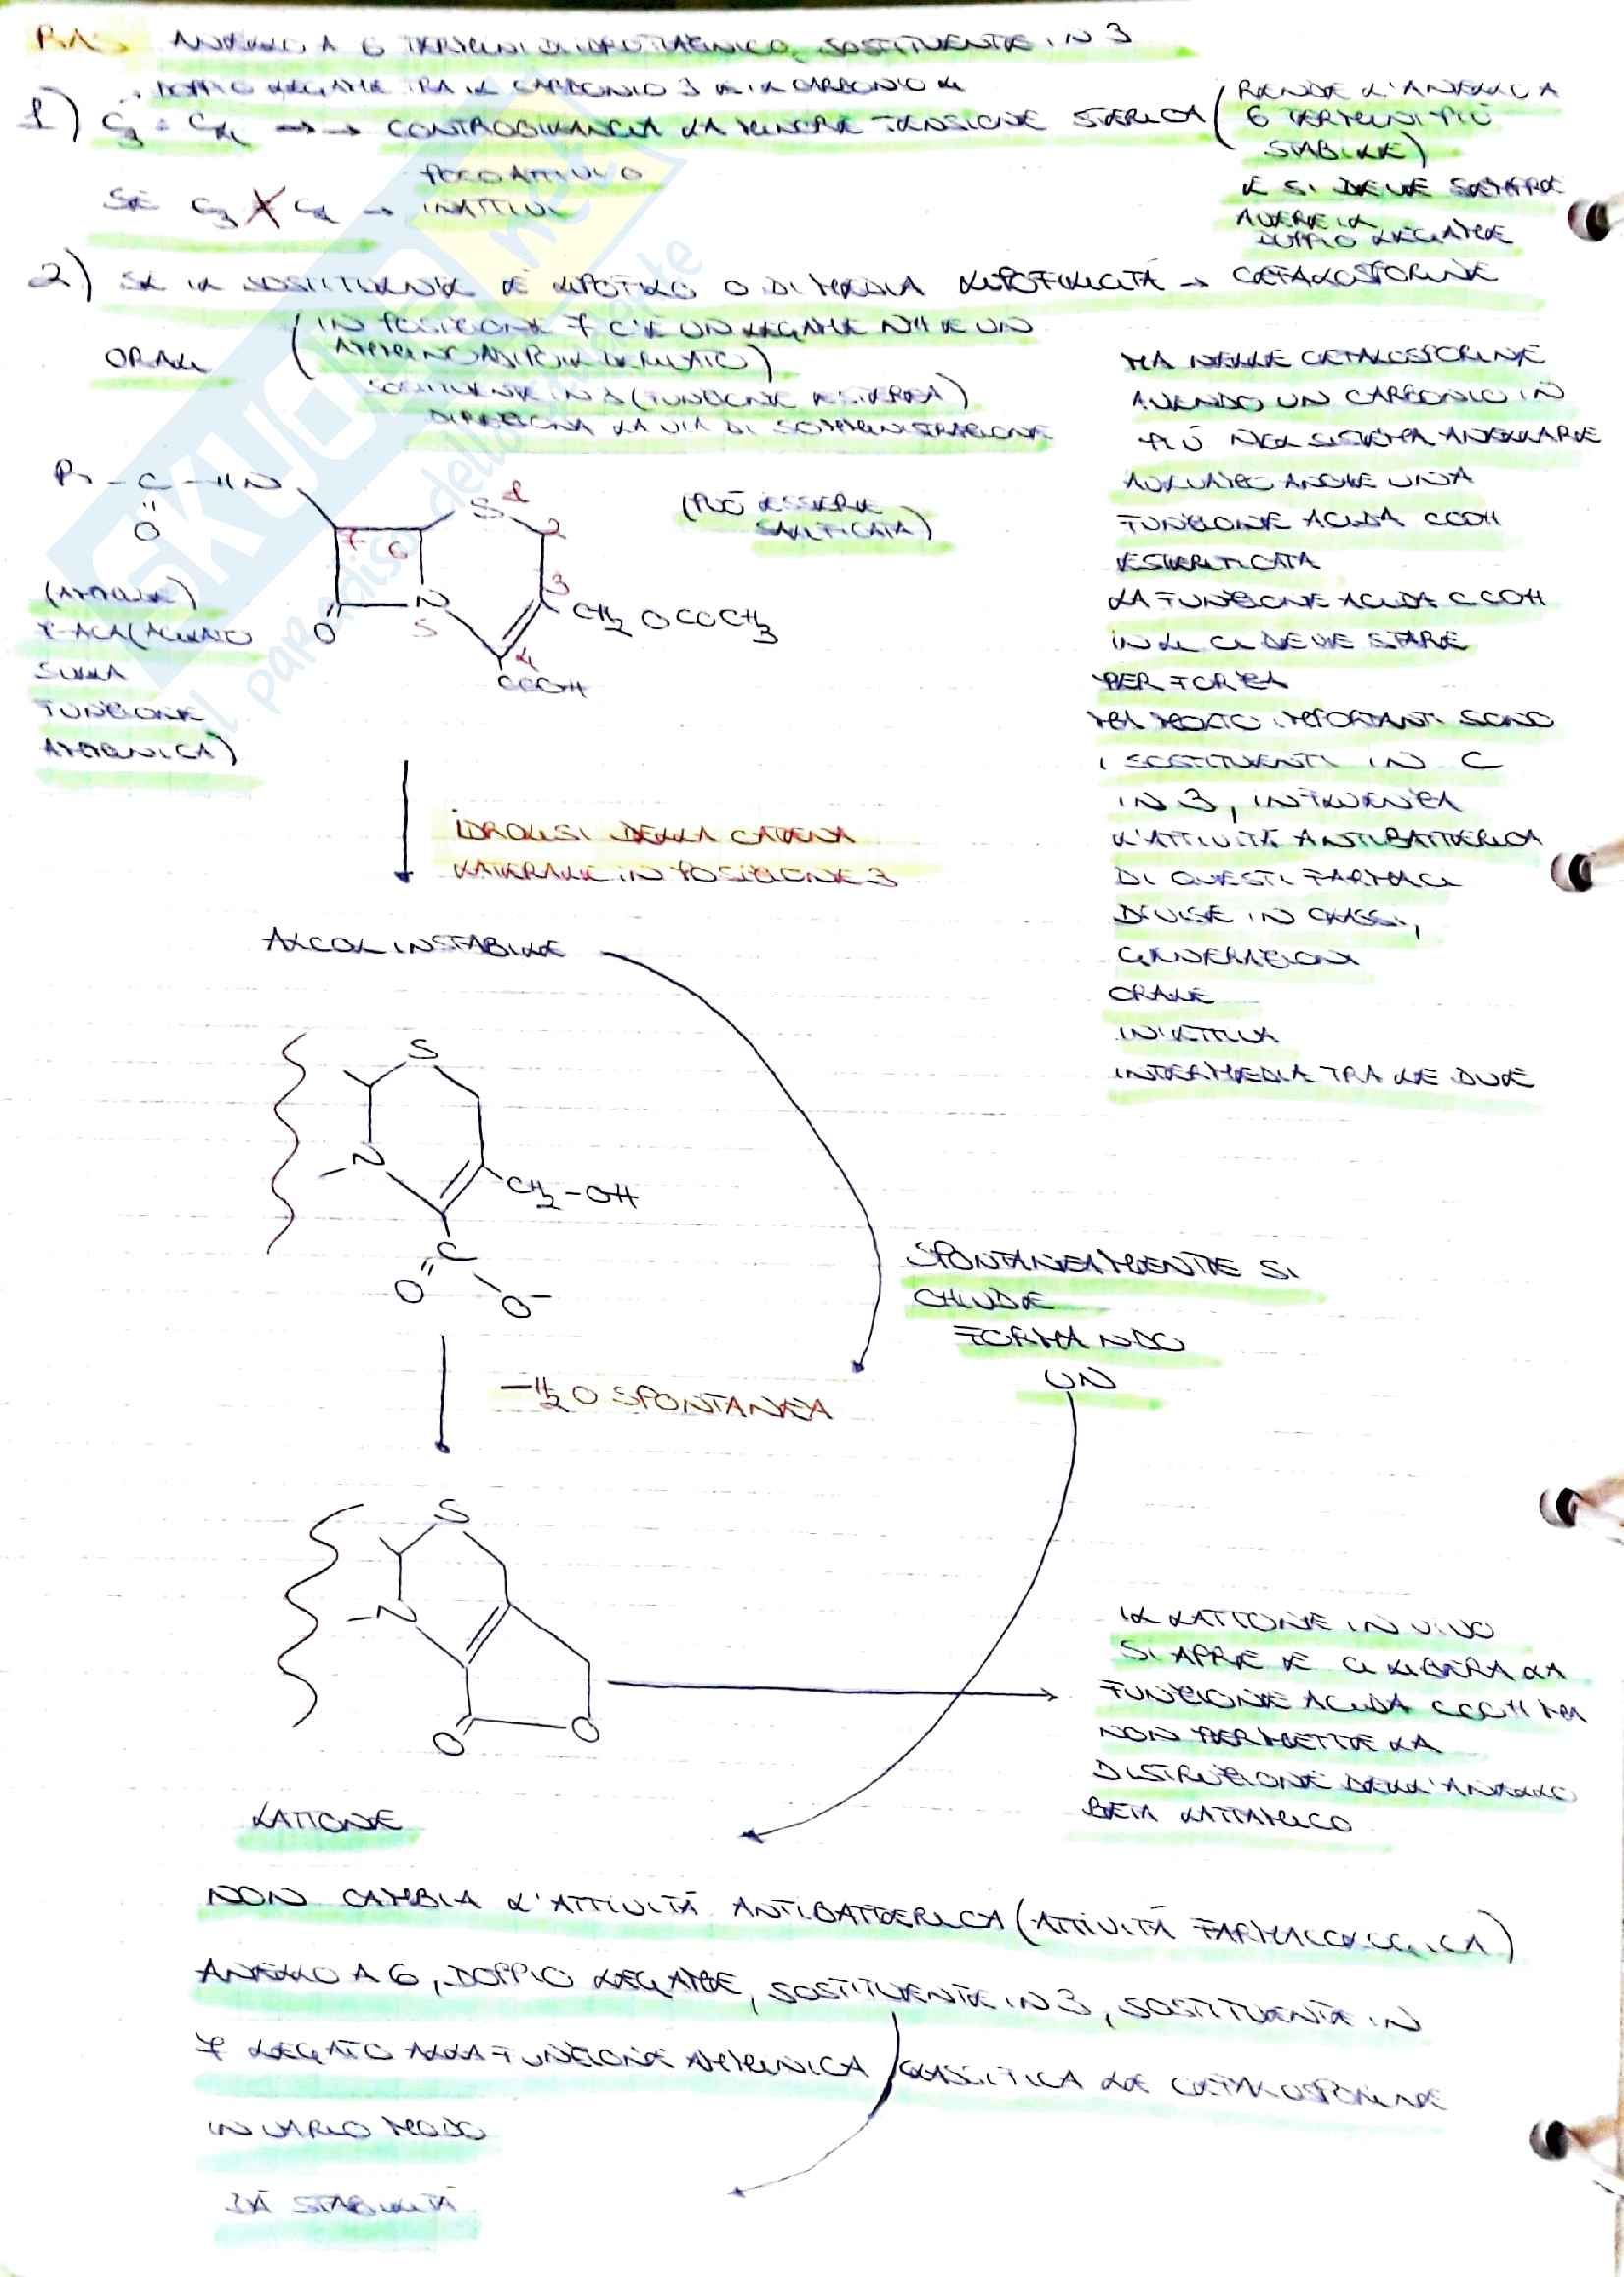 RAS ANELLO A 6 TERMINI DIIDROTIAZINICO, SOSTITUENTE IN 3
DOPPIO LEGAME TRA IL CARBONIO 3 E IL CARBONIO 4
1) C3 = C4 → → CONTROBILANCIA LA MINORE TENSIONE STERICA (RENDE L'ANELLO A
6 TERMINI PIÙ
STABILE)
E SI DEVE SEMPRE
AVERE IL
DOPPIO LEGAME
POCO ATTIVO O
SE C3 C4 → INATTIVI
2) SE IL SOSTITUENTE È LIPOFILO O DI MEDIA LIPOFILICITÀ → CEFALOSPORINE
ORALI
(IN POSIZIONE 7 C'È UN LEGAME NH E UN
DERIVATO)
SOSTITUENTE IN 3 (FUNZIONE ESTEREA)
DIREZIONA LA VIA DI SOMMINISTRAZIONE
R - C - HN
O
S 1
2
3
7 6
N
5
O
4
CH2 OCOCH3
COOH
(PUÒ ESSERE
SALIFICATA)
(AMMIDE)
7-ACA (ACILATO
SULLA
FUNZIONE
AMMINICA)
MA NELLE CEFALOSPORINE
AVENDO UN CARBONIO IN
PIÙ NEL SISTEMA ANULARE
ANCHE UNA
FUNZIONE ACIDA COOH
ESTERIFICATA
LA FUNZIONE ACIDA COOH
IN 4 CI DEVE STARE
PER FORZA
MOLTO IMPORTANTI SONO
I SOSTITUENTI IN C
IN 3, INFLUENZA
L'ATTIVITÀ ANTIBATTERICA
DI QUESTI FARMACI
DIVISE IN CLASSI,
GENERAZIONI
ORALE
INIETTIVA
INTERMEDIA TRA LE DUE
IDROLISI DELLA CATENA
LATERALE IN POSIZIONE 3
ALCOL INSTABILE
S
N
CH2-OH
C
O
O-
SPONTANEAMENTE SI
CHIUDE
FORMANDO
UN
-H2O SPONTANEA
S
N
O
O
LATTONE
IL LATTONE IN VIVO
SI APRE E CI LIBERA LA
FUNZIONE ACIDA COOH MA
NON PERMETTE LA
DISTRUZIONE DELL'ANELLO
BETA LATTAMICO
NON CAMBIA L'ATTIVITÀ ANTIBATTERICA (ATTIVITÀ FARMACOLOGICA)
ANELLO A 6, DOPPIO LEGAME, SOSTITUENTE IN 3, SOSTITUENTE IN
7 LEGATO ALLA FUNZIONE AMMINICA CLASSIFICA LE CEFALOSPORINE
IN VARIO MODO
DÀ STABILITÀ
SKUOLA.net
il paradiso dello studente